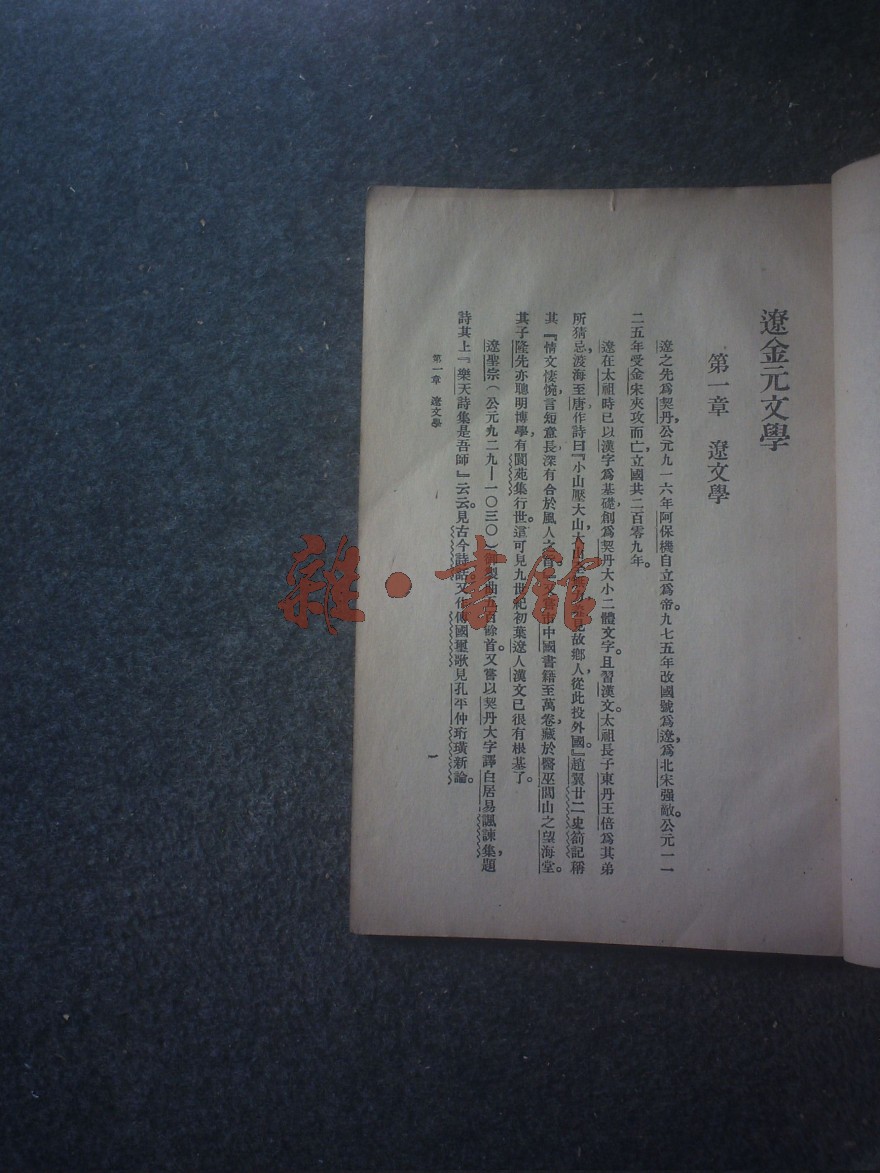 遼金元文學
第一章 遼文學
遼之先爲契丹,公元九一六年阿保機自立爲帝。九七五年改國號爲遼,爲北宋强敵。公元一一
二五年受金宋夾攻而亡,立國共二百零九年。
遼在太祖時已以漢字爲基礎,創爲契丹大小二體文字。且習漢文。太祖長子東丹王倍爲其弟
所猜忌,渡海至唐,作詩曰『小山壓大山,大山 見故鄉人,從此投外國。』趙翼廿二史箚記稱
其『情文悽惋,言短意長,深有合於風人之 中國書籍至萬卷,藏於醫巫閭山之望海堂。
其子隆先亦聰明博學,有閬苑集行世。這可見九世紀初葉遼人漢文已很有根基了。
遼聖宗(公元九二九—一〇三〇) 製曲五百餘首。又嘗以契丹大字譯白居易諷諫集,題
詩其上『樂天詩集是吾師』云云。見古今詩話又作傳國璽歌見孔平仲珩璜新論。
第一章 遼文學
一
雜·書館